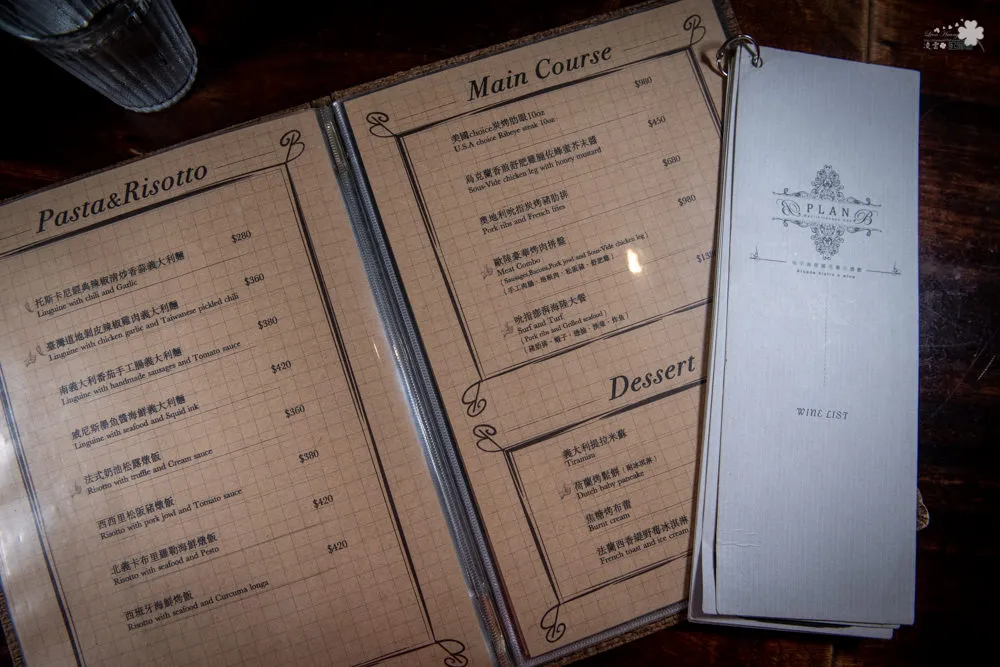 Pasta&Risotto
托斯卡尼經典辣椒清炒香蒜義大利麵
$280
Linguine with chili and Garlic
臺灣道地剝皮辣椒雞肉義大利麵
$360
Linguine with chicken garlic and Taiwanese pickled chili
南義大利番茄手工腸義大利麵
$380
Linguine with handmade sausages and Tomato sauce
威尼斯墨魚醬海鮮義大利麵
$420
Linguine with seafood and Squid ink
法式奶油松露燉飯
$360
Risotto with truffle and Cream sauce
西西里松阪豬燉飯
$380
Risotto with pork jowl and Tomato sauce
北義卡布里羅勒海鮮燉飯
$420
Risotto with seafood and Pesto
西班牙海鮮烤飯
$420
Risotto with seafood and Curcuma longa
Main Course
美國choice炭烤肋眼10oz
$980
U.S.A choice Ribeye steak 10oz
烏克蘭香煎舒肥雞腿佐蜂蜜芥末醬
$450
Sous-Vide chicken leg with honey mustard
奧地利吮指炭烤豬肋排
$680
Pork ribs and French fries
歐陸豪華烤肉拼盤
$980
Meat Combo
( Sausages,Bacon,Pork jowl and Sous-Vide chicken leg )
吮指澎湃海陸大餐
Surf and Turf
( Pork ribs and Grilled seafood )
Dessert
義大利提拉米蘇
Tiramisu
荷蘭烤鬆餅 ( 附冰淇淋 )
Dutch baby pancake
焦糖烤布蕾
Burnt cream
法蘭西香緹野莓冰淇淋
French toast and ice cream
PLAN B
WINE LIST